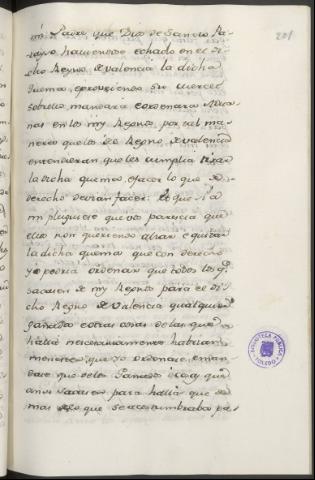 Padre, que Dios de Santo Pa-
rayso haviendo echado en el di-
cho Reyno de valencia la dicha
quema, e proveyendo su merced
sobre ello mandara e ordenara
nas en los mis Reynos, por tal ma-
nera que los del Reyno de valencia
entenderan que les cumplia dexar
la dicha quema, e facer lo que de
derecho devian facer: e que si a
mi pluguiese que vos parescia que
ellos non queriendo alzar, e quitar
la dicha quema que con derecho
yo podria ordenar que todos los q.e
sacasen de mis Reynos para el di-
cho Reyno de Valencia qualquier
ganados e otras cosas de las que de
halla necesariamente habrian
menester que Yo ordenase, e man-
dase que de los Ganados e cosas que
ansi sacasen para halla que de
mas de lo que se acostumbraba pa-
201
BIBLIOTECA PUBLICA
TOLEDO